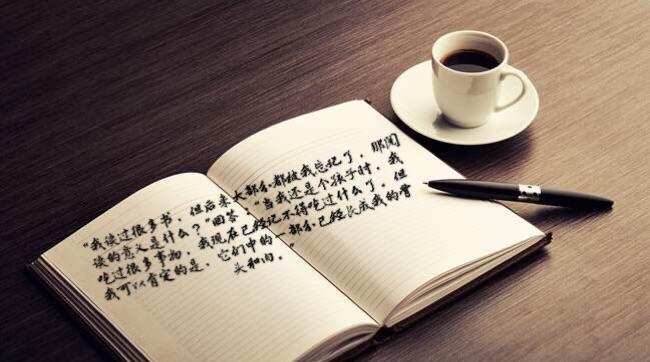 “我读过很多书，但后来大部分都被我忘记了，那阅
读的意义是什么？”回答：“当我还是个孩子时，我
吃过很多事物，我现在已经记不得吃过什么了，但
我可以肯定的是，它们中的一部分已经长成我的骨
头和肉。”